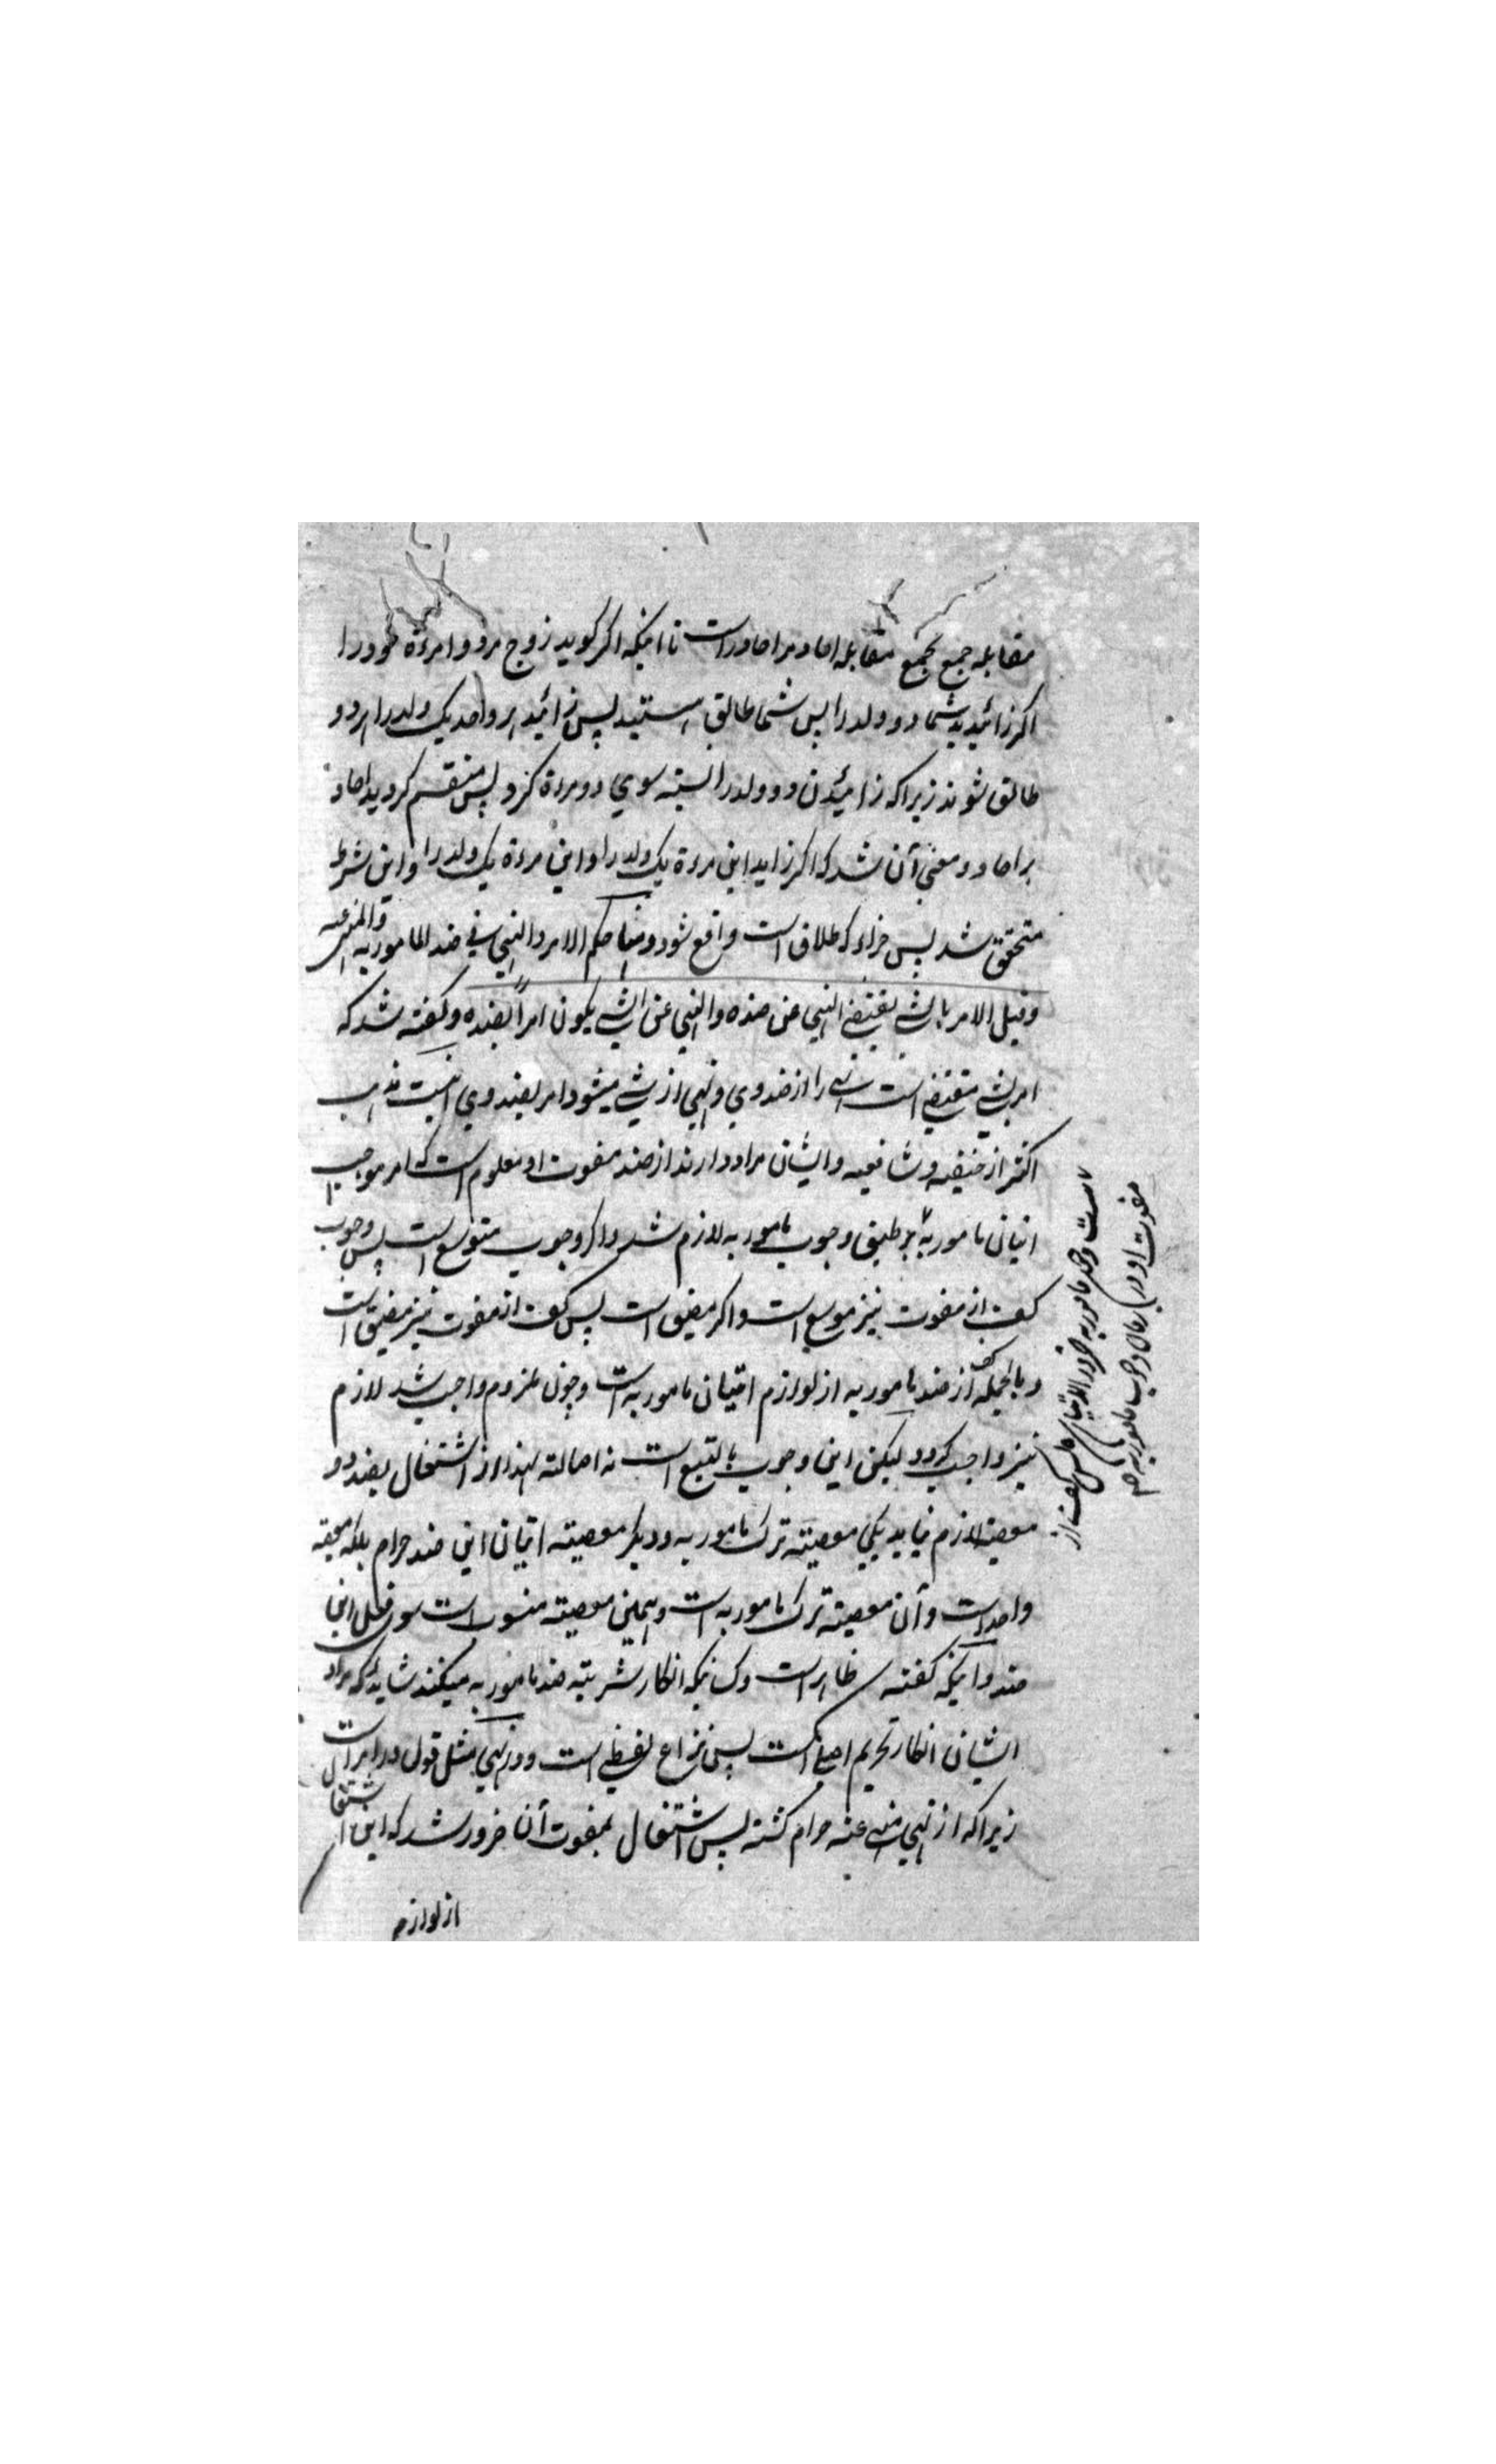 مقابله جمع بجمع مقابله احاد مر احاد راست تا اینکه اگر گوید زوج مر دو امرءة خود را
اگر زائیدید شما دو ولد را پس شما طالق هستید پس زائید هر واحد یک ولد را هر دو
طالق شوند زیرا که زائیدن دو ولد را نسبته سوی دو مرءة کرد پس منقسم گردید احاد
بر احاد و معنی آن شد که اگر زاید این مرءة یک ولد را و این مرءة یک ولد را و این شرط
متحقق شد پس جزاء که طلاق است واقع شود و منها حکم الامر و النهی فی ضد المامور به والمنهی عنه
وقیل الامر بالشی یقتضی النهی عن ضده والنهی عن الشی یکون امراً بضده و گفته شد که
امر بشی مقتضی است نهی را از ضد وی و نهی از شی میشود امر بضد وی اینست مذهب
اکثر از حنیفیه و شافعیه و ایشان مراد دارند از ضد مفوت او معلوم است که امر موجب
اتیان مامور به بر طبق وجوب مامور به لازم شد و اگر وجوب متوسع است پس وجوب
کف از مفوت نیز موسع است و اگر مضیق است پس کف از مفوت نیز مضیق است
و بالجمله کف از ضد مامور به از لوازم اتیان مامور به است و چون ملزوم واجب شد لازم
نیز واجب گردد لیکن این وجوب بالتبع است نه اصالته لهذا از اشتغال بضد دو
معصیة لازم نیاید یکی معصیته ترک مامور به و دیگر معصیته اتیان این ضد حرام بلکه معصیته
واحد است و آن معصیته ترک مامور به است و همین معصیته منسوب است سوی فعل این
ضد و اینکه گفته ظاهر است و کسانیکه انکار ضد مامور به میکنند شاید که مراد
ایشان انکار تحریم اصلی است پس نزاع لفظی است و در نهی مثل قول در امر است
زیرا که از نهی منهی عنه حرام گشته پس اشتغال بمفوت آن ضرور شد که این اشتغال
از لوازم
است و ضد مامور به خود را لا پس کف از
مفوت او در زمان وجوب مامور به هم